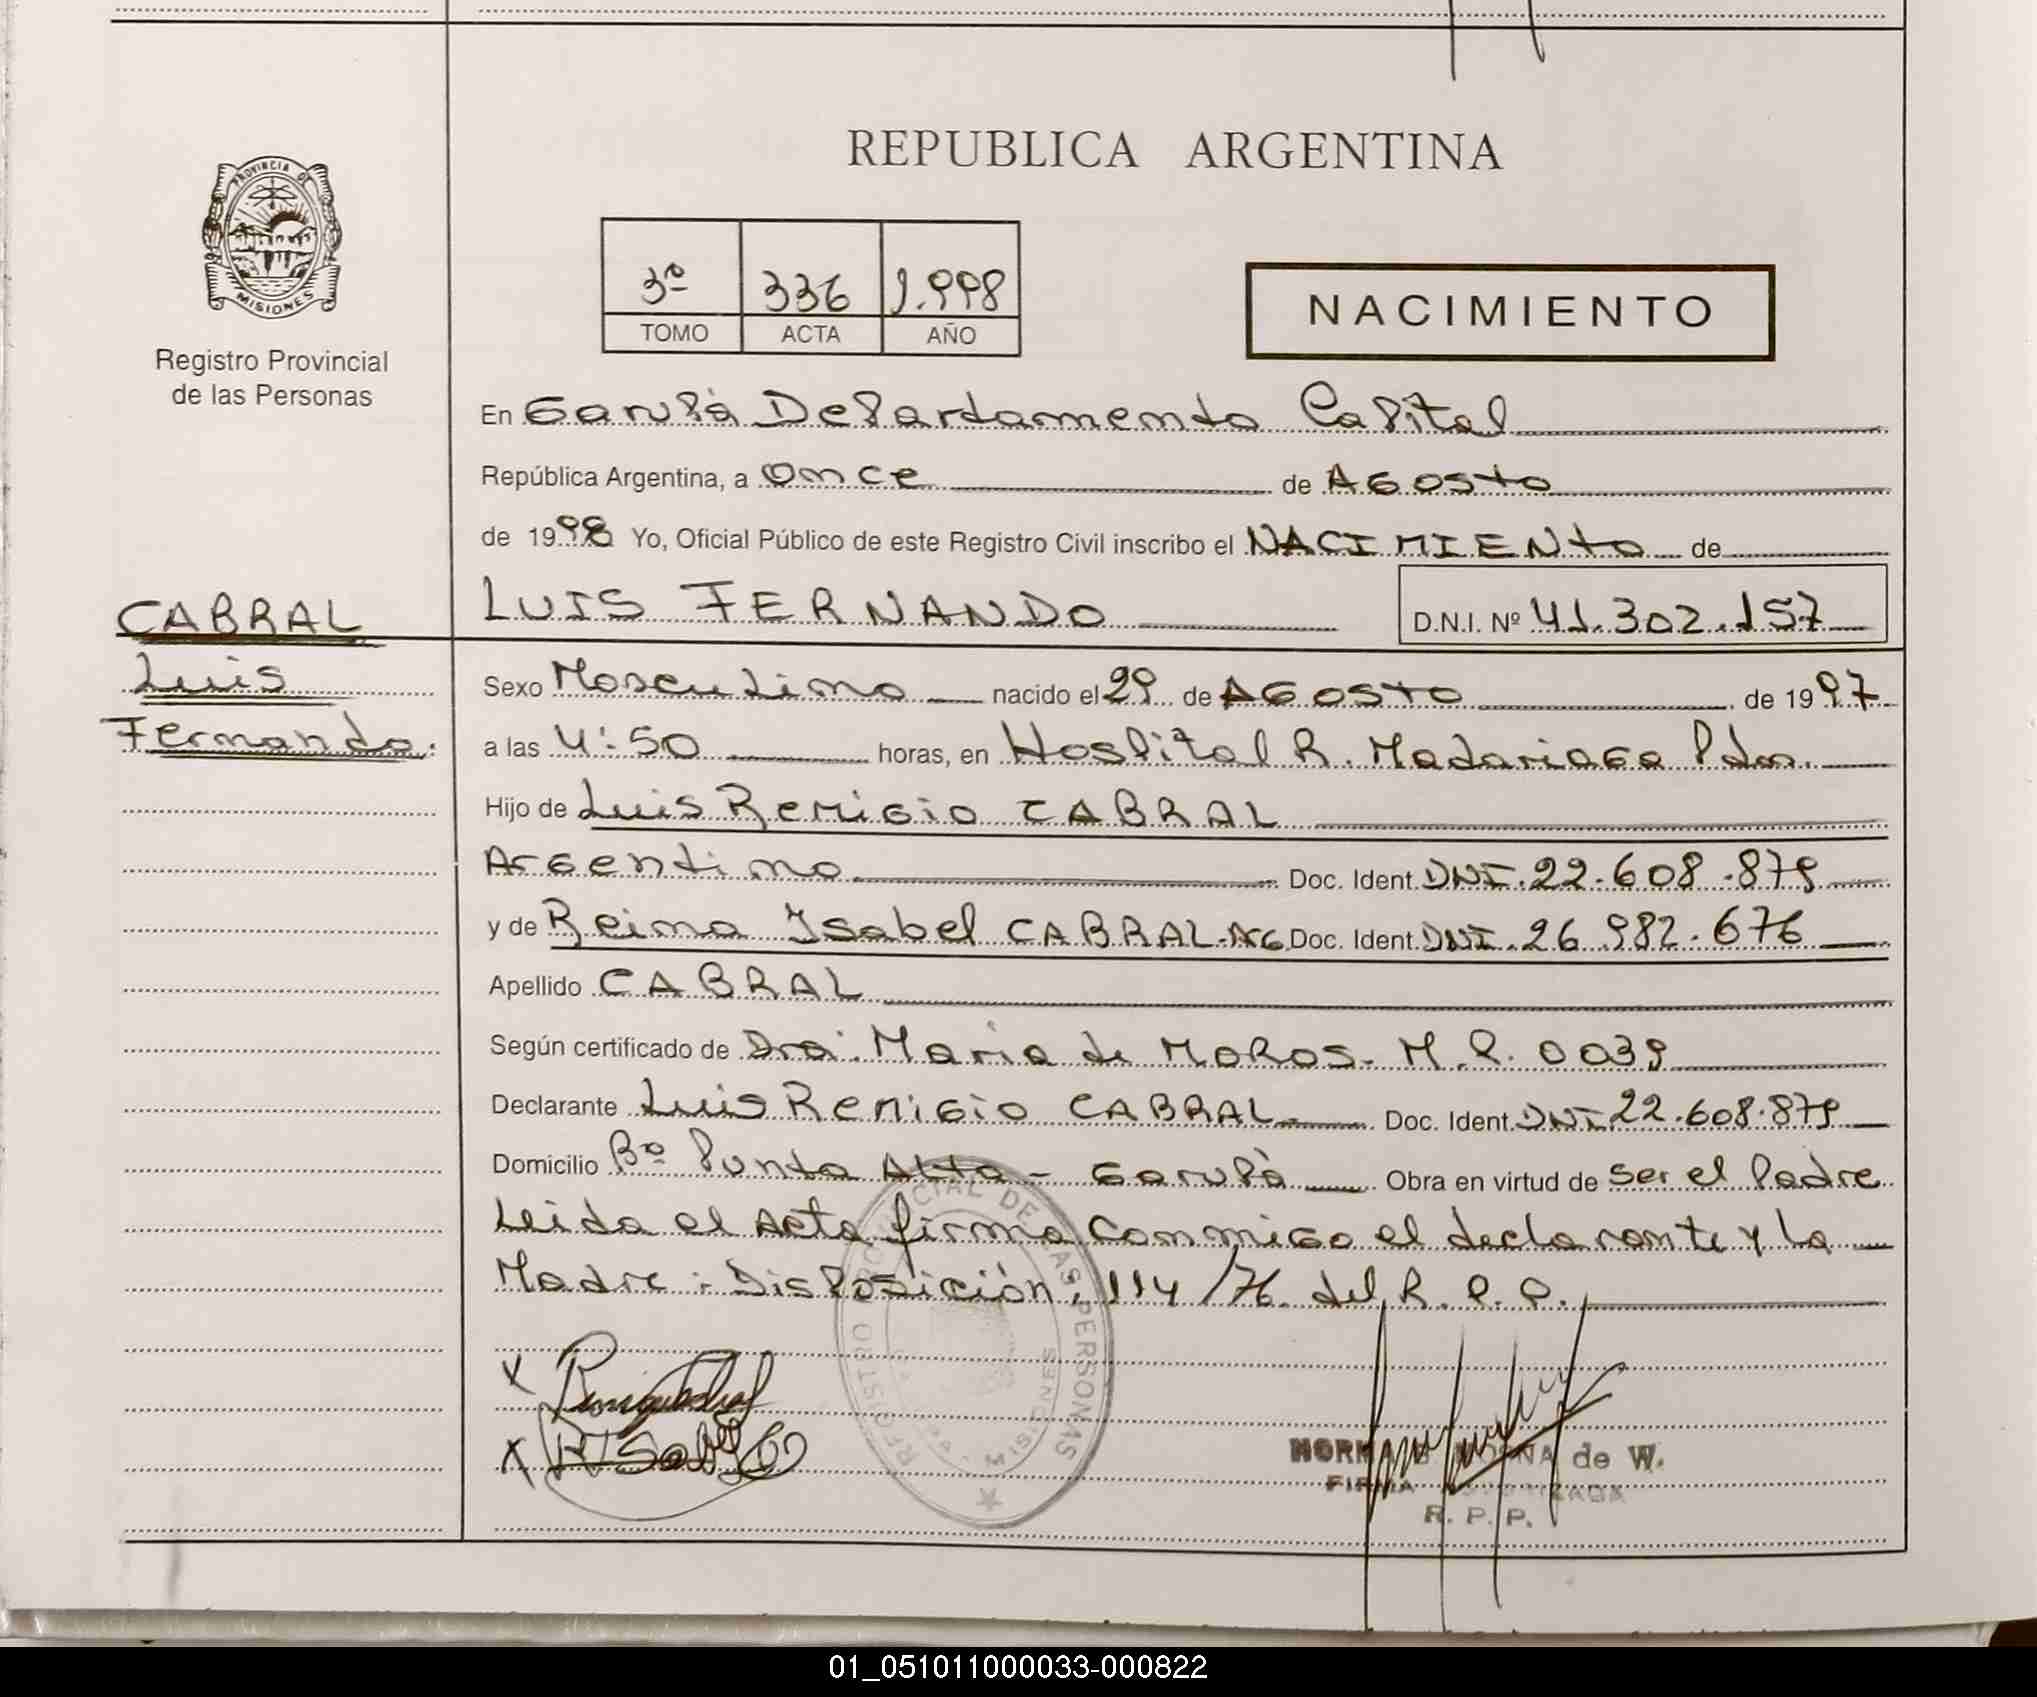 REPUBLICA ARGENTINA
PROVINCIA DE
MISIONES
Registro Provincial
de las Personas
3º 336 1.998
TOMO ACTA AÑO
NACIMIENTO
En Garupá Departamento Capital
República Argentina, a once de Agosto
de 1998 Yo, Oficial Público de este Registro Civil inscribo el NACIMIENTO de
CABRAL
Luis
Fernando.
LUIS FERNANDO
D.N.I. Nº 41.302.157
Sexo Masculino nacido el 29 de AGOSTO de 1997
a las 4:50 horas, en Hospital R. Madariaga Pdas.
Hijo de Luis Remigio CABRAL
Argentino Doc. Ident. DNI. 22.608.879
y de Reina Isabel CABRAL-Arg Doc. Ident. DNI. 26.982.676
Apellido CABRAL
Según certificado de Dra. Maria de Moros. M.P. 0039
Declarante Luis Remigio CABRAL Doc. Ident. DNI. 22.608.879
Domicilio Bº Punta Alta - Garupá Obra en virtud de ser el Padre
Leida el Acta firma conmigo el declarante y la
Madre: Disposición, 114/76 del R.P.P.
REGISTRO PROVINCIAL DE LAS PERSONAS
MISIONES
X
X
de W.
R. P. P.
01_051011000033-000822